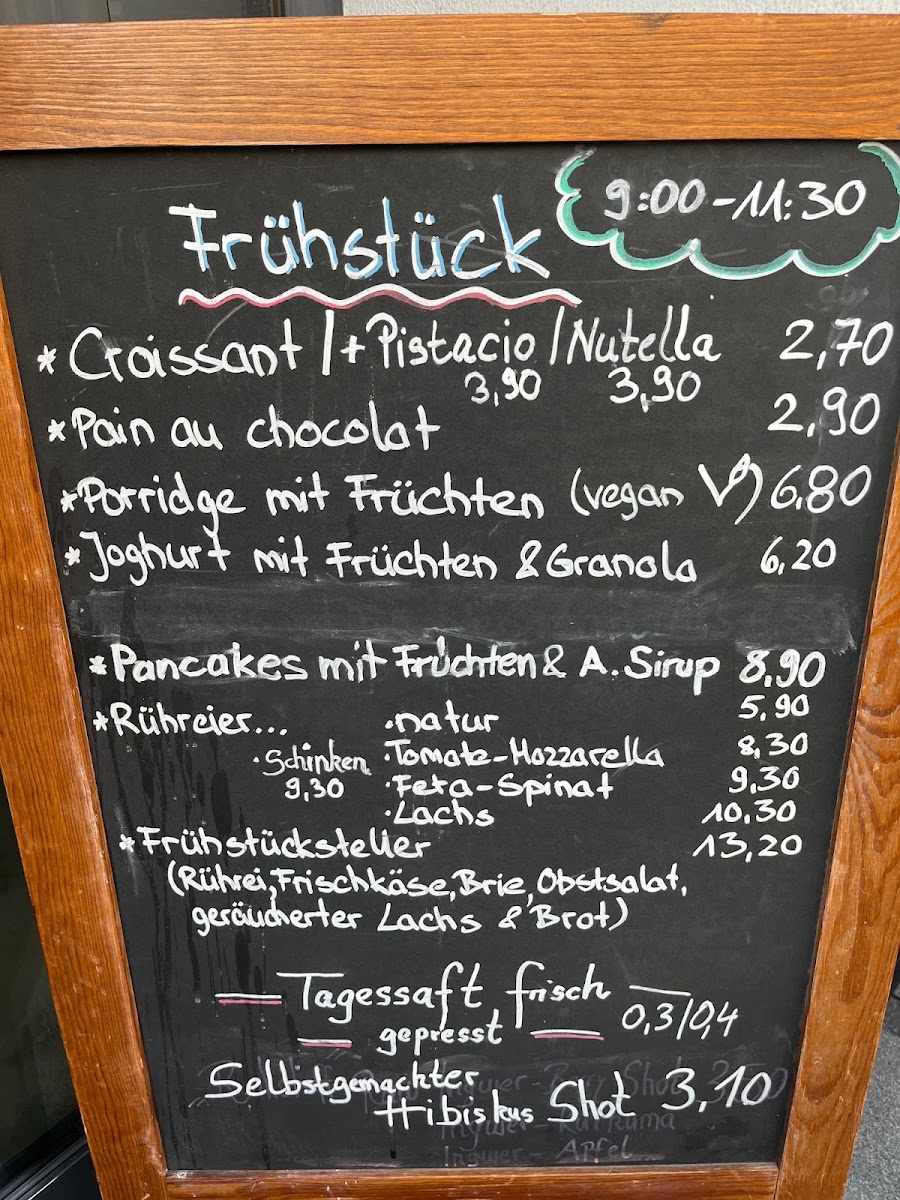 Frühstück 9:00-11:30
* Croissant /+ Pistacio / Nutella 2,70
3,90 3,90
* Pain au chocolat 2,90
* Porridge mit Früchten (vegan V) 6,80
* Joghurt mit Früchten & Granola 6,20
* Pancakes mit Früchten & A. Sirup 8,90
* Rühreier... · natur 5,90
· Schinken · Tomate-Mozzarella 8,30
9,30 · Feta-Spinat 9,30
· Lachs 10,30
* Frühstücksteller 13,20
(Rührei, Frischkäse, Brie, Obstsalat,
geräucherter Lachs & Brot)
Tagessaft frisch
gepresst 0,3/0,4
Selbstgemachter
Hibiskus Shot 3,10
Ingwer - Kurkuma
Ingwer - Apfel